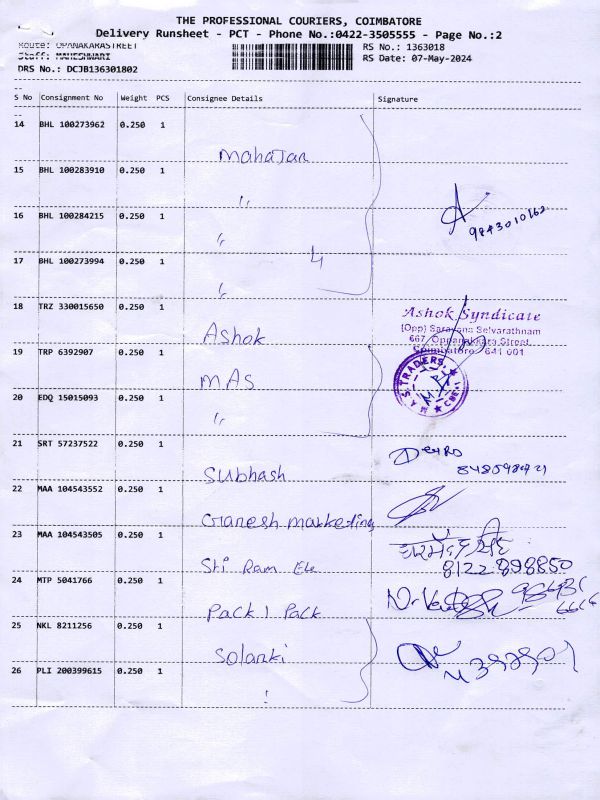 THE PROFESSIONAL COURIERS, COIMBATORE
Delivery Runsheet - PCT - Phone No.:0422-3505555 - Page No.:2
Route: OPANAKARASTREET
RS No.: 1363018
Staff: MAHESHWARI
RS Date: 07-May-2024
DRS No.: DCJB136301802
S No Consignment No Weight PCS Consignee Details Signature
14 BHL 100273962 0.250 1
Mahajan
15 BHL 100283910 0.250 1
"
16 BHL 100284215 0.250 1
"
9843010162
17 BHL 100273994 0.250 1
4
"
18 TRZ 330015650 0.250 1
Ashok
Ashok Syndicate
(Opp) Saravana Selvarathnam
667, Oppanakkara Street,
Coimbatore - 641 001
19 TRP 6392907 0.250 1
MAS
M.A.S. TRADERS, ★ CBE-1 ★
20 EDQ 15015093 0.250 1
"
21 SRT 57237522 0.250 1
Subhash
22 MAA 104543552 0.250 1
Ganesh marketing
23 MAA 104543505 0.250 1
Sri Ram Ele
8122898850
24 MTP 5041766 0.250 1
Pack 1 Pack
25 NKL 8211256 0.250 1
Solanki
26 PLI 200399615 0.250 1